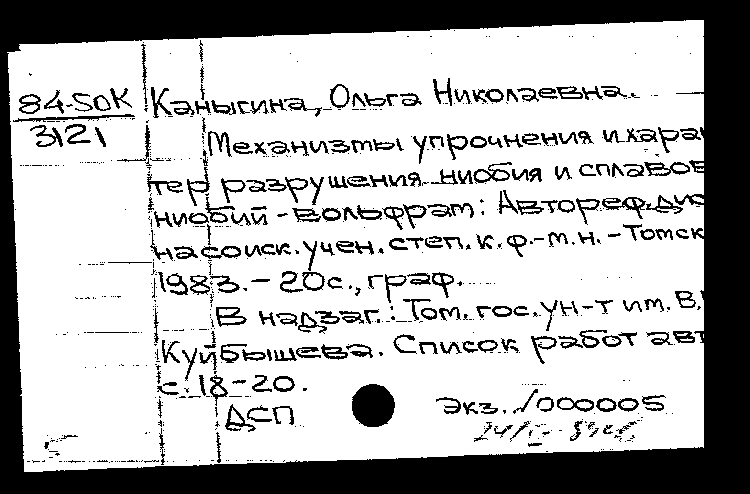 84-50К Каныгина, Ольга Николаевна.
3121
Механизмы упрочнения и хара
тер разрушения ниобия и сплавов
ниобий - вольфрам: Автореф. дис
на соиск. учен. степ. к. ф.-м. н. - Томск
1983. - 20 с., граф.
В надзаг.: Том. гос. ун-т им. В.
Куйбышева. Список работ авт
с. 18-20.
ДСП
Экз. √000005
5